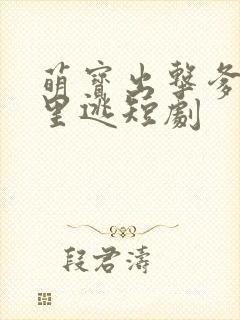 萌寳出擊爹
里逃短劇
段君濤